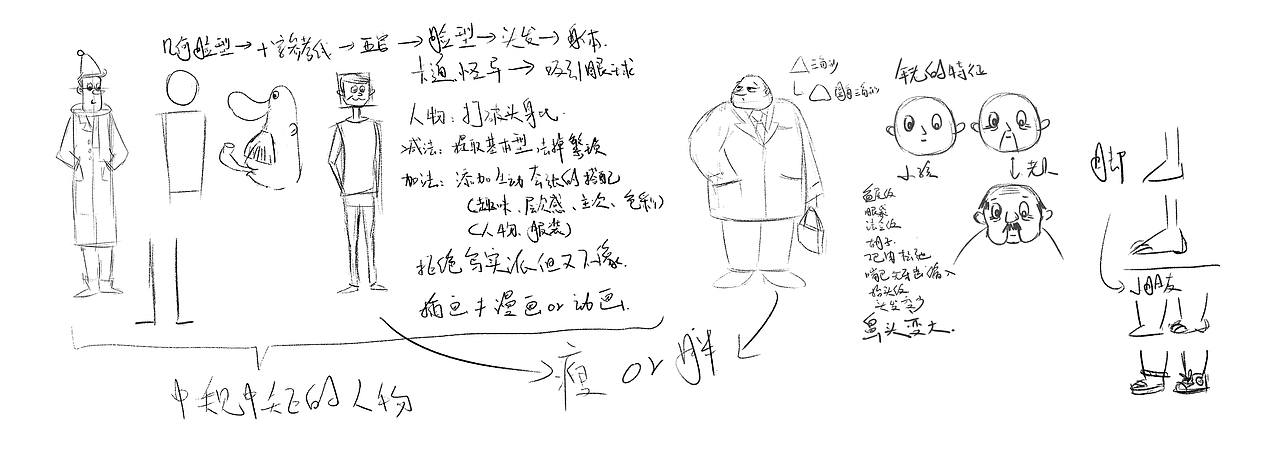 几何脸型→十字参考线→五官→脸型→头发→身体.
卡通.怪异→吸引眼球
人物:打破头身比.
减法:提取基本型 去掉繁琐
加法:添加生动夸张的搭配
(趣味、层次感、主次、色彩)
(人物、服装)
拒绝写实派但又不像.
插画≠漫画or动画.
中规中矩的人物
瘦 or 胖
△三角形
圆角三角形
年龄的特征
小孩
老人
鱼尾纹
眼袋
法令纹
胡子.
肌肉松弛
嘴巴
抬头纹
头发变少
鼻头变大.
脚